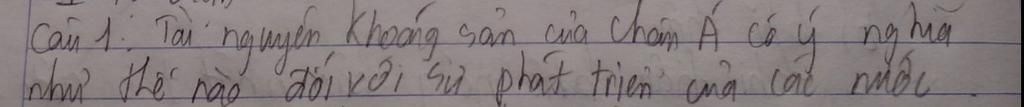 Câu 1: Tài nguyên Khoáng sản của Châu Á có ý nghĩa
như thế nào đối với sự phát triển của các nước.